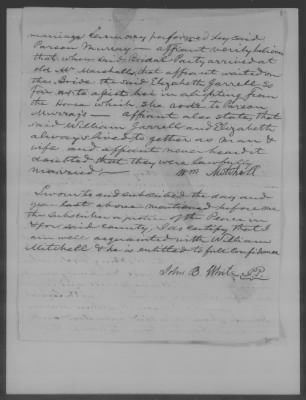 marriage Ceremony performed by said
Parson Murray — affiant verily believes
that when said Bridal Party arrived at
old Mr Marshall, that affiant waited on
the Bride the said Elizabeth Garrell so
far as to assist her in alighting from
the horse which she rode to Parson
Murray's — affiant also states, that
said William Garrell and Elizabeth
always lived together as man &
wife and affiant never heard it
doubted that they were lawfully
married —
Wm Mitchell
Sworn to and subscribed the day and
year last above mentioned before me
the subscriber a justice of the Peace in
& for said County, I do certify that I
am well acquainted with William
Mitchell & he is entitled to full confidence
John B. White J.P.